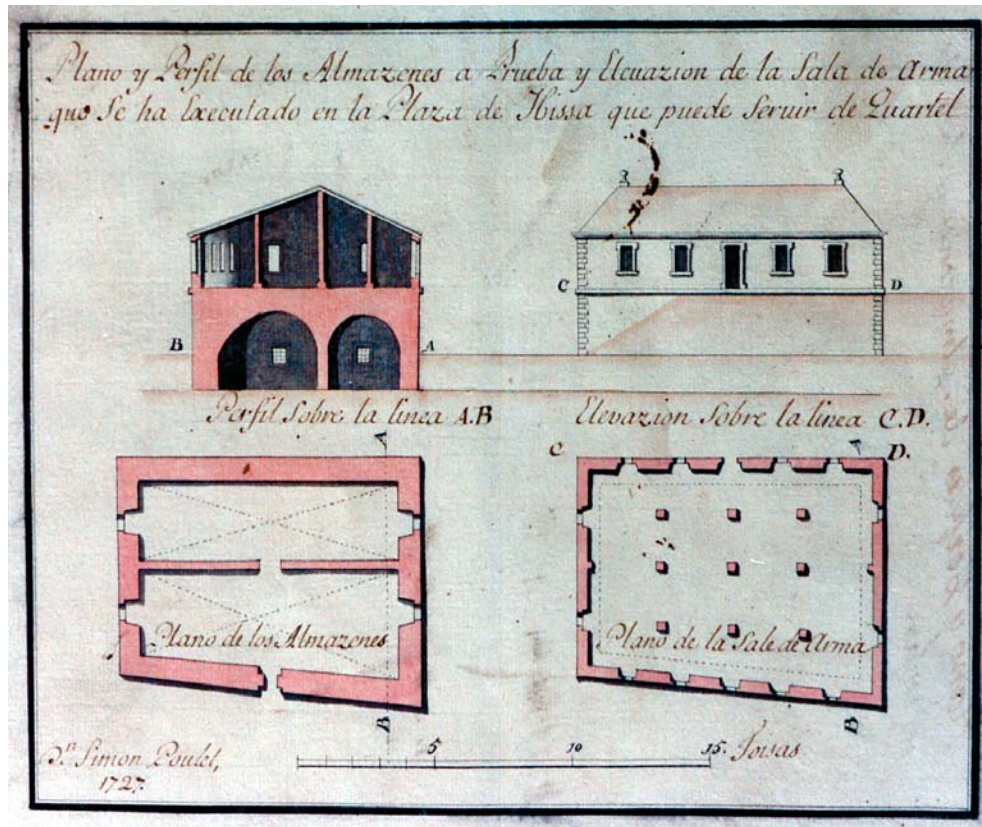 Plano y Perfil de los Almazenes a Prueba y Elevazion de la Sala de Arma
que Se ha Executado en la Plaza de Ibissa que puede Servir de Quartel
C
D
B
A
Perfil Sobre la linea A.B
Elevazion Sobre la linea C.D.
A
C
A
D.
Plano de los Almazenes
Plano de la Sale de Arma
B
B
5
10
15. Toisas
Dn Simon Poulet,
1727.